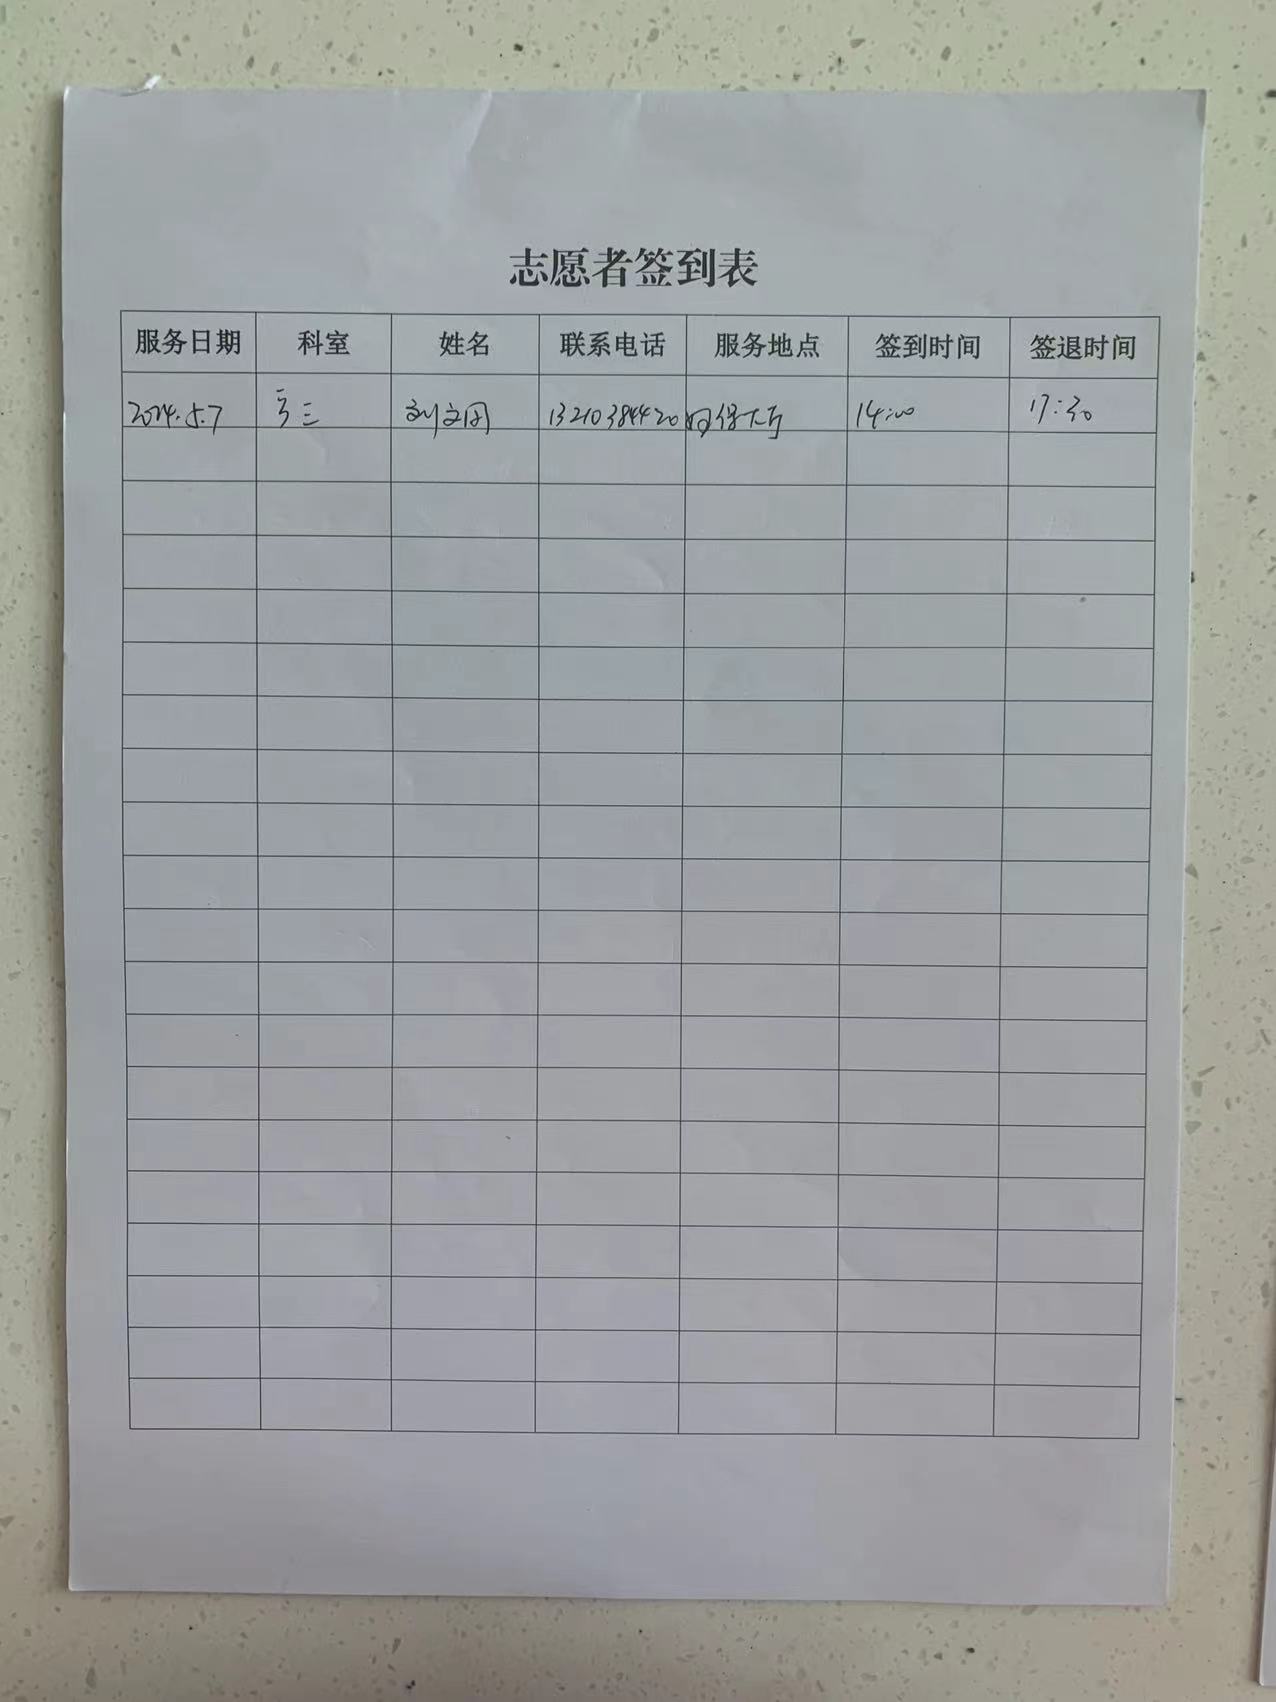 志愿者签到表
服务日期 科室 姓名 联系电话 服务地点 签到时间 签退时间
2024.5.7 三 刘文 13210384420 保大厅 14:00 17:30